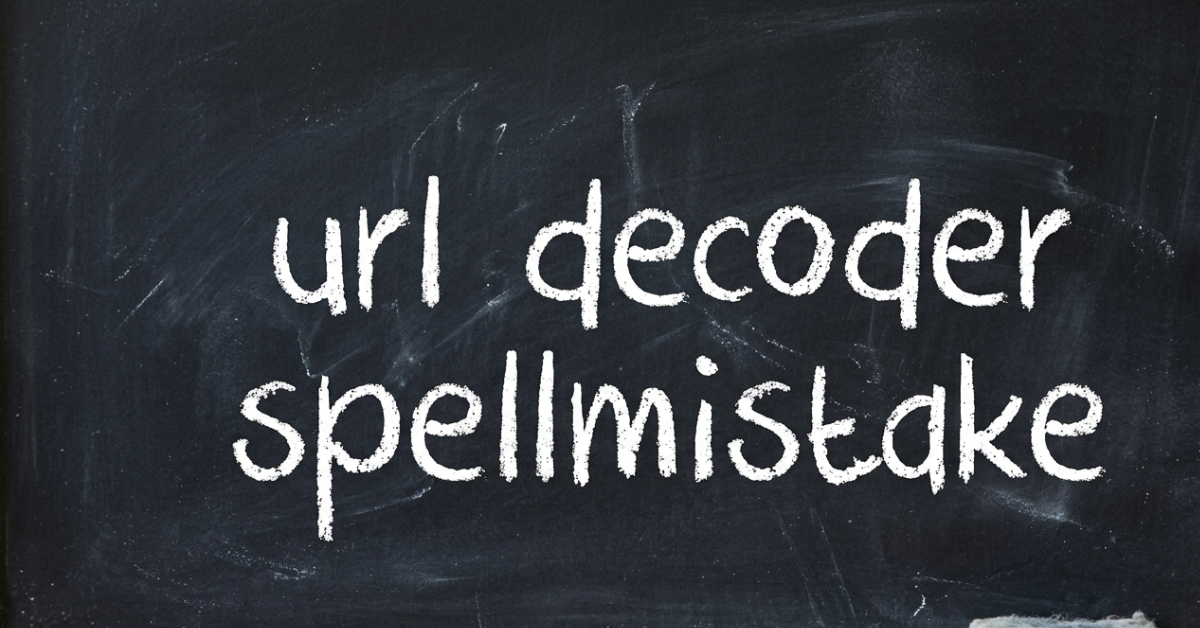 url decoder
spellmistake